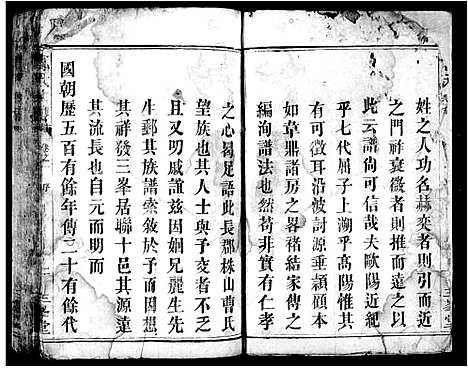 姓之人功名赫奕者則引而近
之門祚衰微者則推而遠之以
此云譜尙可信哉夫歐陽近紀
乎七代屈子上溯乎高陽惟其
有可徵耳沿波討源垂穎顧本
如草鼎諸房之畧褚結家傳之
編洵譜法也然苟非實有仁孝
之心曷足語此長郡株山曹氏
望族也其人士與予交者不一
且又明戚誼兹因姻兄麗生先
生郵其族譜索敘於予而因想
其祥發三峯居聯十邑其源遠
其流長也自元而明而
國朝歷五百有餘年傳二十有餘代